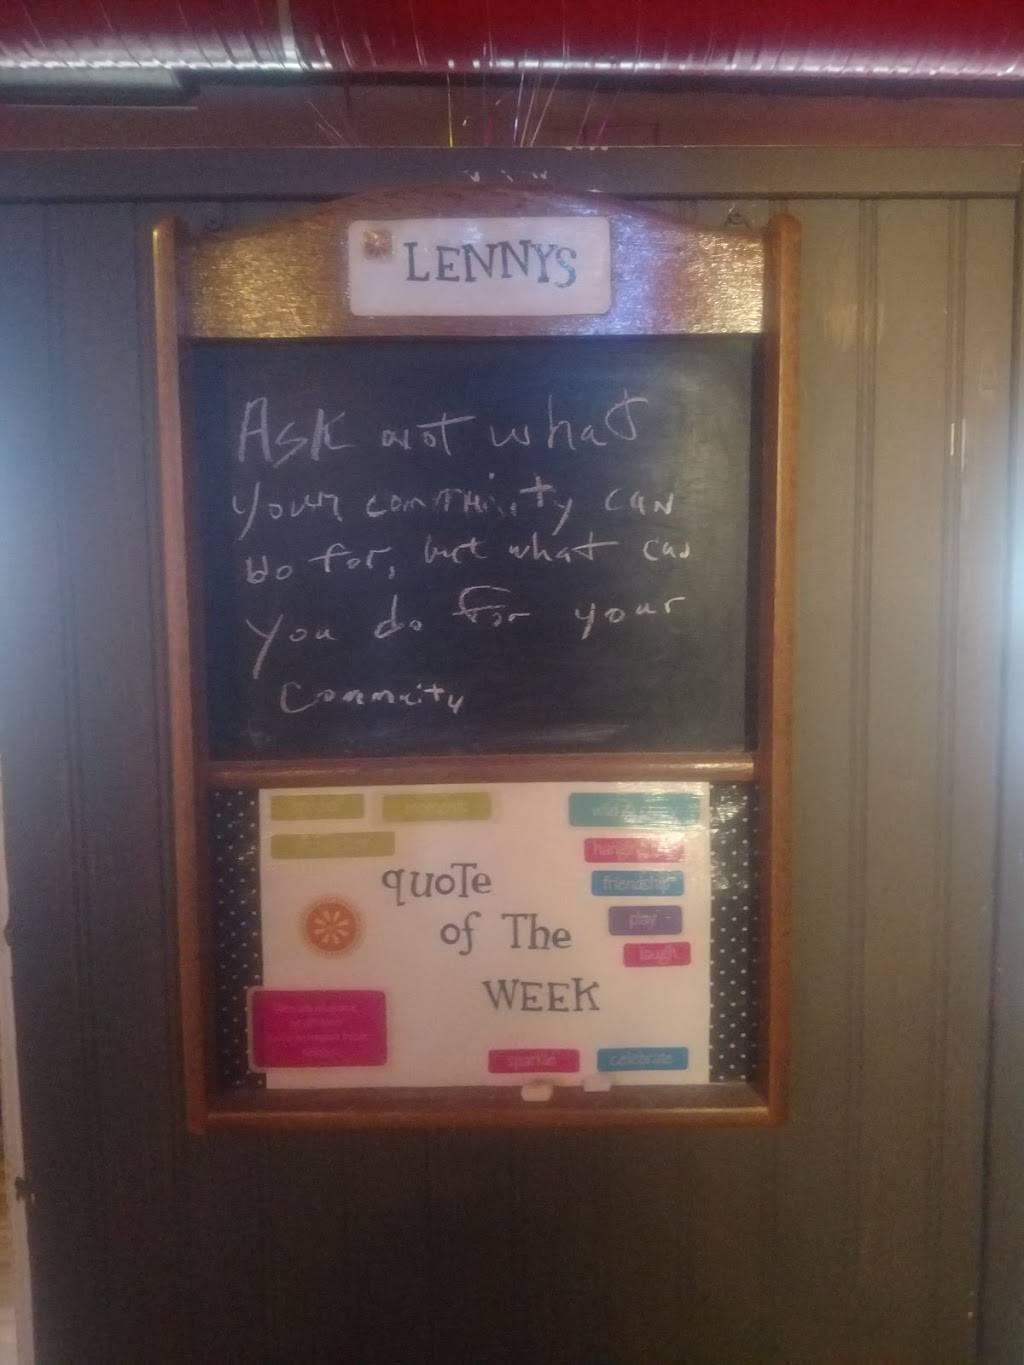 LENNYS
Ask not what
your community can
do for, but what can
you do for your
Community
friendship
play
laugh
quote
of The
WEEK
sparkle
celebrate